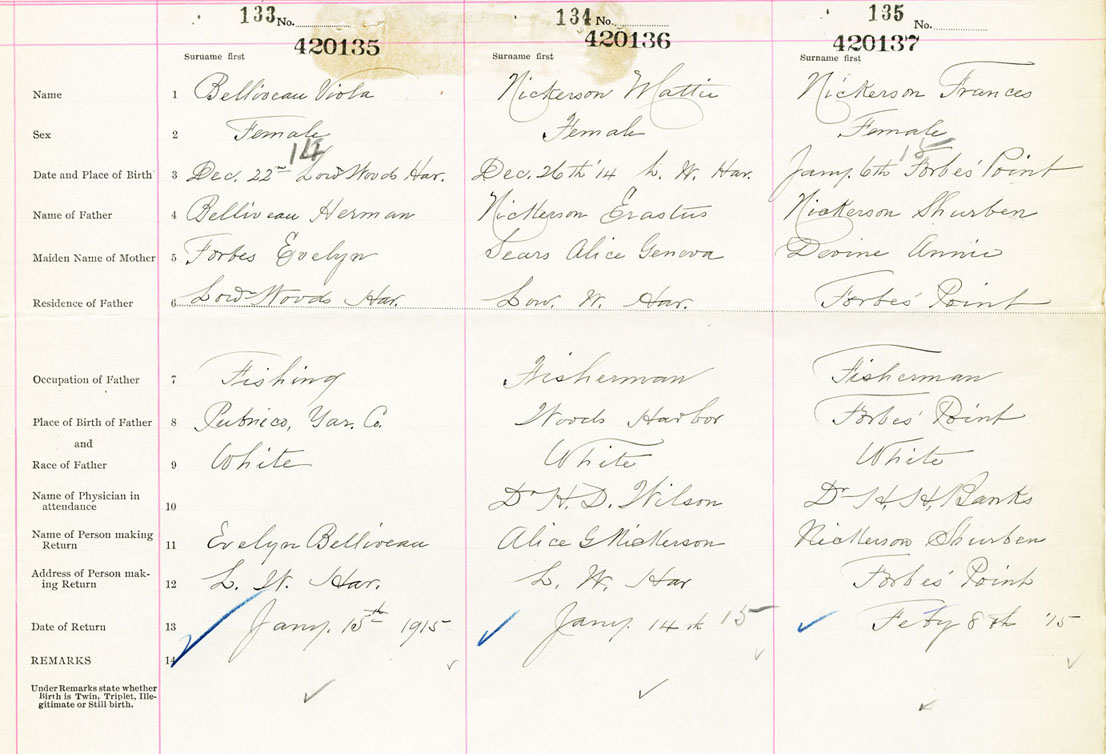 133 No. 134 No. 135 No.
420135 420136 420137
Surname first Surname first Surname first
Name 1 Belliveau Viola Nickerson Mattie Nickerson Frances
Sex 2 Female Female Female
14 15
Date and Place of Birth 3 Dec. 22nd Lowr Woods Har. Dec. 26th '14 L. W. Har. Jany. 6th Forbes' Point
Name of Father 4 Belliveau Herman Nickerson Erastus Nickerson Shurben
Maiden Name of Mother 5 Forbes Evelyn Sears Alice Geneva Devine Annie
Residence of Father 6 Lowr Woods Har. Low. W. Har. Forbes' Point
Occupation of Father 7 Fishing Fisherman Fisherman
Place of Birth of Father 8 Pubnico, Yar. Co. Woods Harbor Forbes' Point
and
Race of Father 9 White White White
Name of Physician in
attendance 10 Dr H. D. Wilson Dr H. H. Banks
Name of Person making
Return 11 Evelyn Belliveau Alice G Nickerson Nickerson Shurben
Address of Person mak-
ing Return 12 L. W. Har. L. W. Har Forbes' Point
Date of Return 13 Jany. 15th 1915 Jany. 14th 15 Feby 8th '15
REMARKS 14
Under Remarks state whether
Birth is Twin, Triplet, Ille-
gitimate or Still birth.